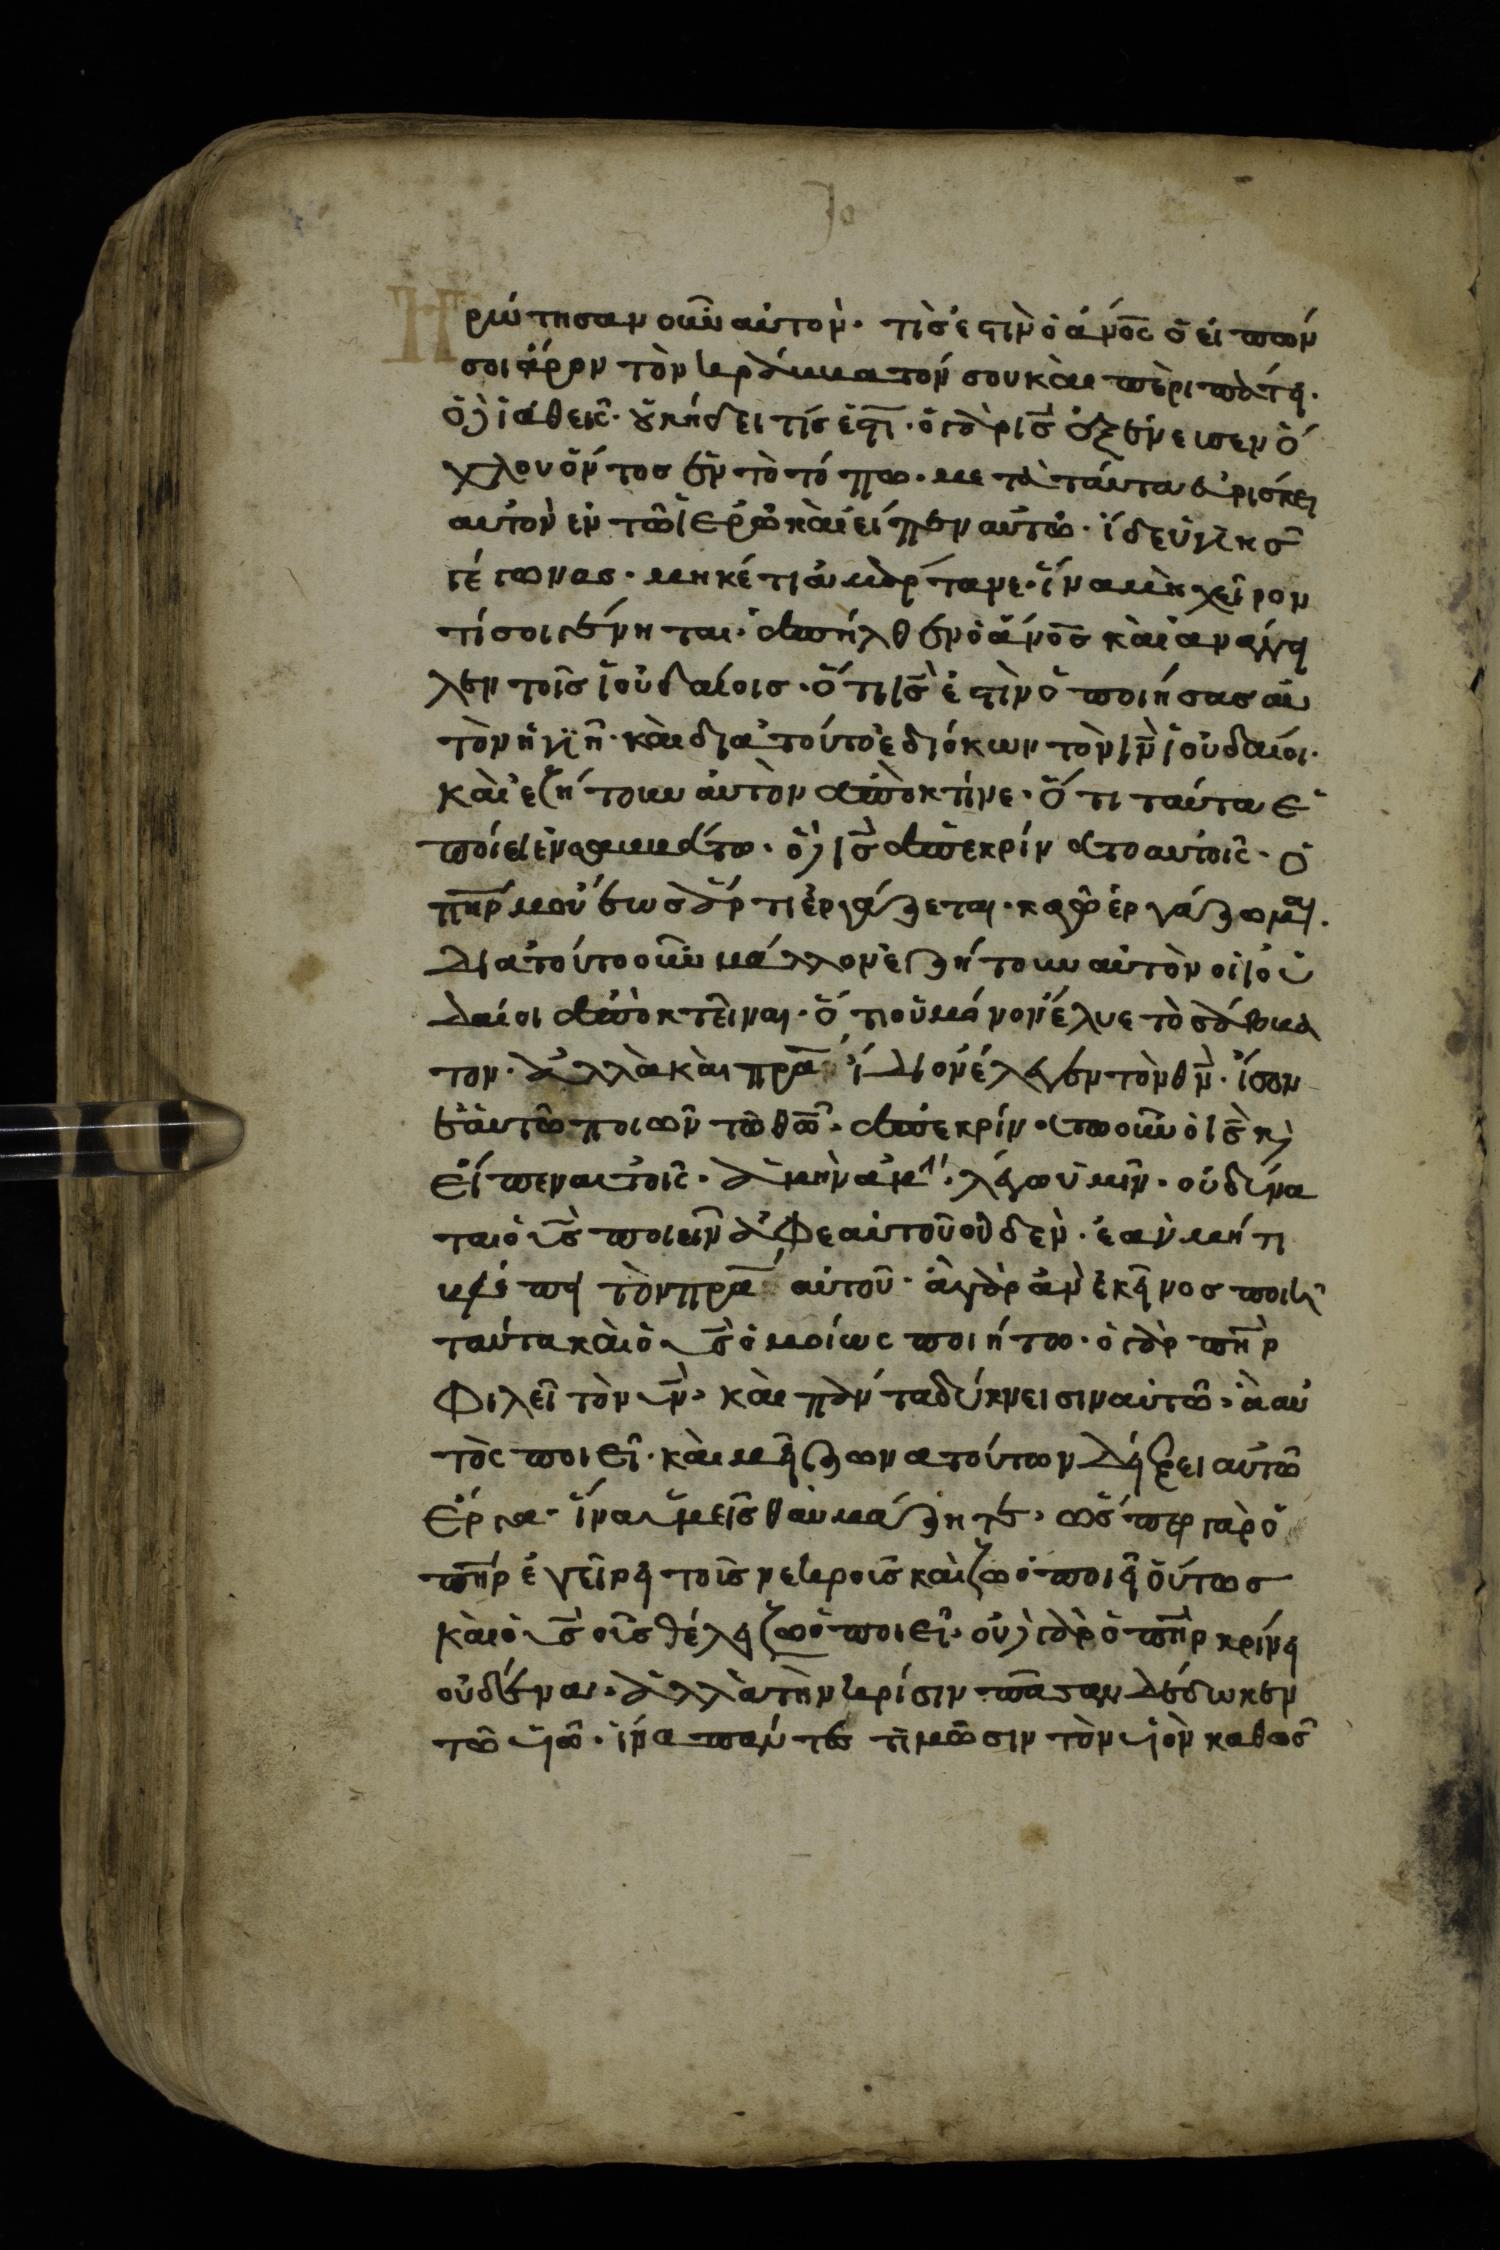 Ἠρώτησαν οὖν αὐτὸν· τὶς ἐστὶν ὁ ἄνος ὁ εἰπών
σοι ἄρον τὸν κράμματόν σου καὶ περιπάτει.
ὁ δὲ ἰάθεις· οὐκ ἤδει τίς ἐστι· ὁ γὰρ ις ἐξένεισεν ὄ
χλου ὄντος ἐν τὸ τόπω· μετὰ ταύτα εὑρίσκει
αυτὸν ἐν τῶ ἱερῶ καὶ εἶπεν αὐτῶ· ἴδε ὑγιὴς
γέγωνας· μηκέτι ἁμάρτανε· ἵνα μὴ χεῖρον
τί σοι γένηται· ἀπήλθεν ὁ ἄνος καὶ ἀνάγγει
λεν τοῖς ἰουδαίοις· ὅτι ις ἐστὶν ὁ ποιήσας αὐ
τὸν ἡγιῆ· καὶ δια τοῦτο ἐδιόκων τὸν ιν ἰουδαίοι·
καὶ ἐζήτουν αὐτὸν ἀποκτῆνε· ὅτι ταύτα ἐ
ποίει ἐν σαμμάτω· ὁ δὲ ις ἀπεκρίνατο αυτοῖς· ὁ
πηρ μου ἕως ἄρτι ἐργάζεται· καγὼ ἐργάζωμαι.
Δια τούτο οὖν μάλλον ἐζήτουν αὐτὸν οἱ ἰου
δαίοι ἀποκτεῖναι· ὅτι οὐ μόνον ἔλυε τὸ σάββα
τον· ἀλλὰ καὶ πρα ἴδιον ἔλεγεν τὸν θν· ἴσον
ἑαυτῶ ποιῶν τῶ θω· ἀπεκρίνατο οὖν ὁ ις κὶ
εἶπεν αυτοῖς· ἀμὴν ἀμὴν· λέγω ὑμῖν· οὐ δύνα
ται ὁ υς ποιεῖν ἀφ εαυτοῦ οὐδὲν· ἐὰν μή τι
βλέπει τὸν πρα αὐτοῦ· ἃ γὰρ ἂν ἐκῆνος ποιεῖ
ταύτα καὶ ὁ υς ὁμοίως ποιήτω· ὁ γὰρ πηρ
φιλεῖ τὸν υν· καὶ πάντα δύκνεισιν αὐτῶ· ἃ αὐ
τὸς ποιεῖ· καὶ μείζωνα τούτων δείξει αὐτῶ
ἔργα· ἵνα ὑμεῖς θαυμάζητε· ὥσπερ γὰρ ὁ
πηρ ἐγεῖρει τοῖς νεκροῖς καὶ ζωοποιεῖ οὕτως
καὶ ὁ υς οὓς θέλει ζωοποιεῖ· οὐδὲ γὰρ ὁ πηρ κρίνει
οὐδένα· ἀλλὰ τὴν κρίσιν πᾶσαν δέδωκεν
τῶ υἱῶ· ἵνα πάντες τιμῶσιν τὸν υἱὸν καθὼς